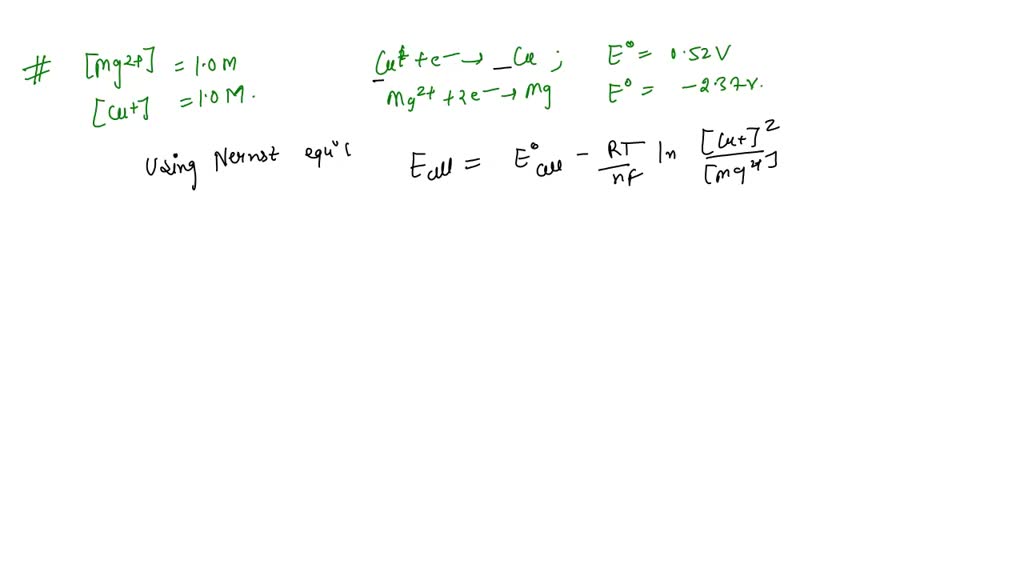 # [Mg2+] = 1.0 M
[Cu+] = 1.0 M.
Cu+ + e- → Cu ; E° = 0.52 V
Mg2+ + 2e- → Mg E° = -2.37 V.
Using Nernst equ'n Ecell = E°cell - RT/nF ln [Cu+]2/[Mg2+]